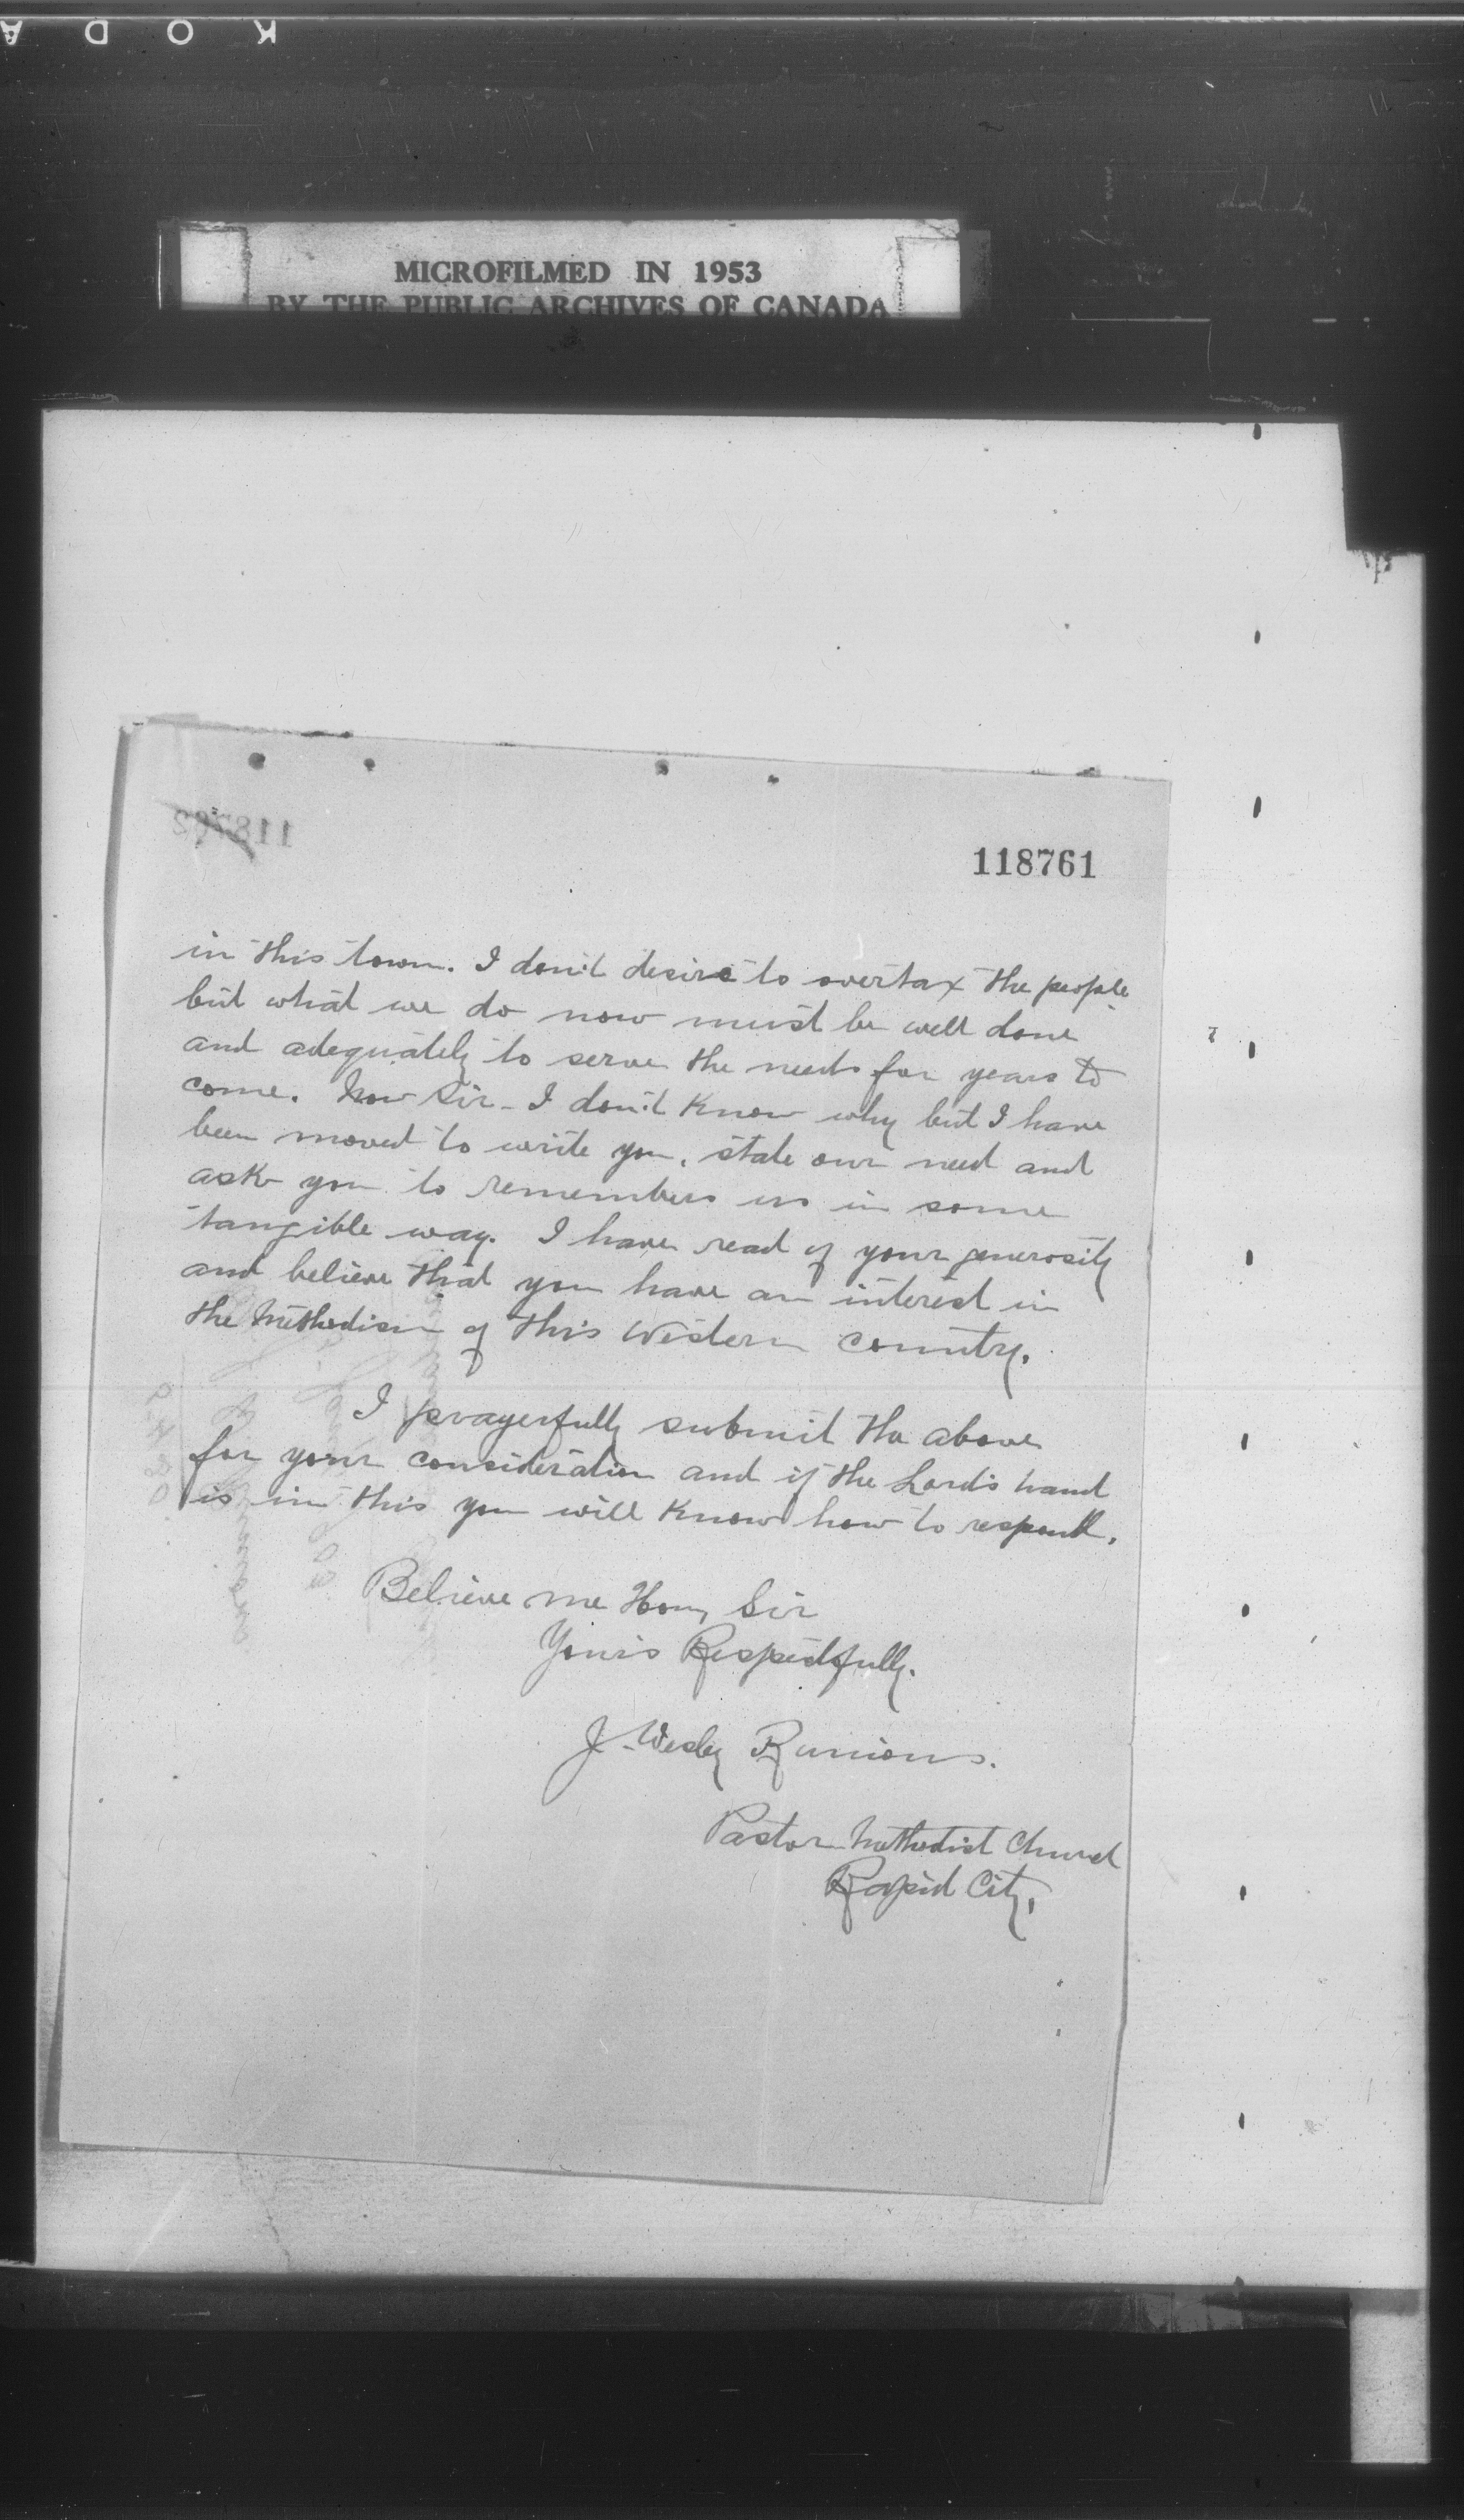 KODA
MICROFILMED IN 1953
BY THE PUBLIC ARCHIVES OF CANADA
118762
118761
in this town. I don't desire to overtax the people
but what we do now must be well done
and adequately to serve the needs for years to
come. Now Sir - I don't know why but I have
been moved to write you, state our need and
ask you to remember us in some
tangible way. I have read of your generosity
and believe that you have an interest in
the Methodism of this Western country.
I prayerfully submit the above
for your consideration and if the Lord's hand
is in this you will know how to respond.
Believe me Hon, Sir
Yours Respectfully.
J. Wesley Runions.
Pastor Methodist Church
Rapid City,